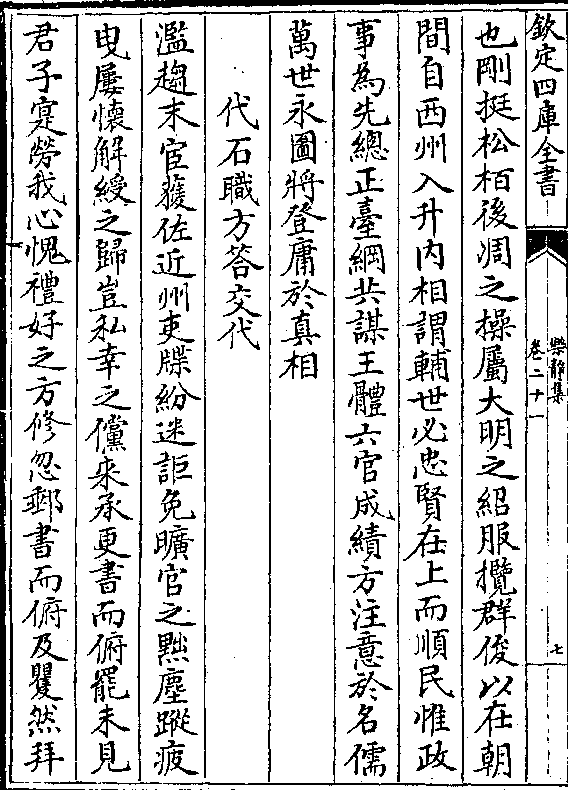 欽定四庫全書
樂靜集
卷二十一
七
也剛挺松栢後凋之操屬大明之紹服攬群俊以在朝
間自西州入升内相謂輔世必忠賢在上而順民惟政
事為先總正臺綱共謀王體六官成績方注意於名儒
萬世永圖將登庸於真相
代石職方答交代
濫趨末宦獲佐近州吏牒紛迷詎免曠官之黜塵蹤疲
曳屢懷解綬之歸豈私幸之儻来承更書而俯罷未見
君子寔勞我心愧禮好之方修忽郵書而俯及矍然拜